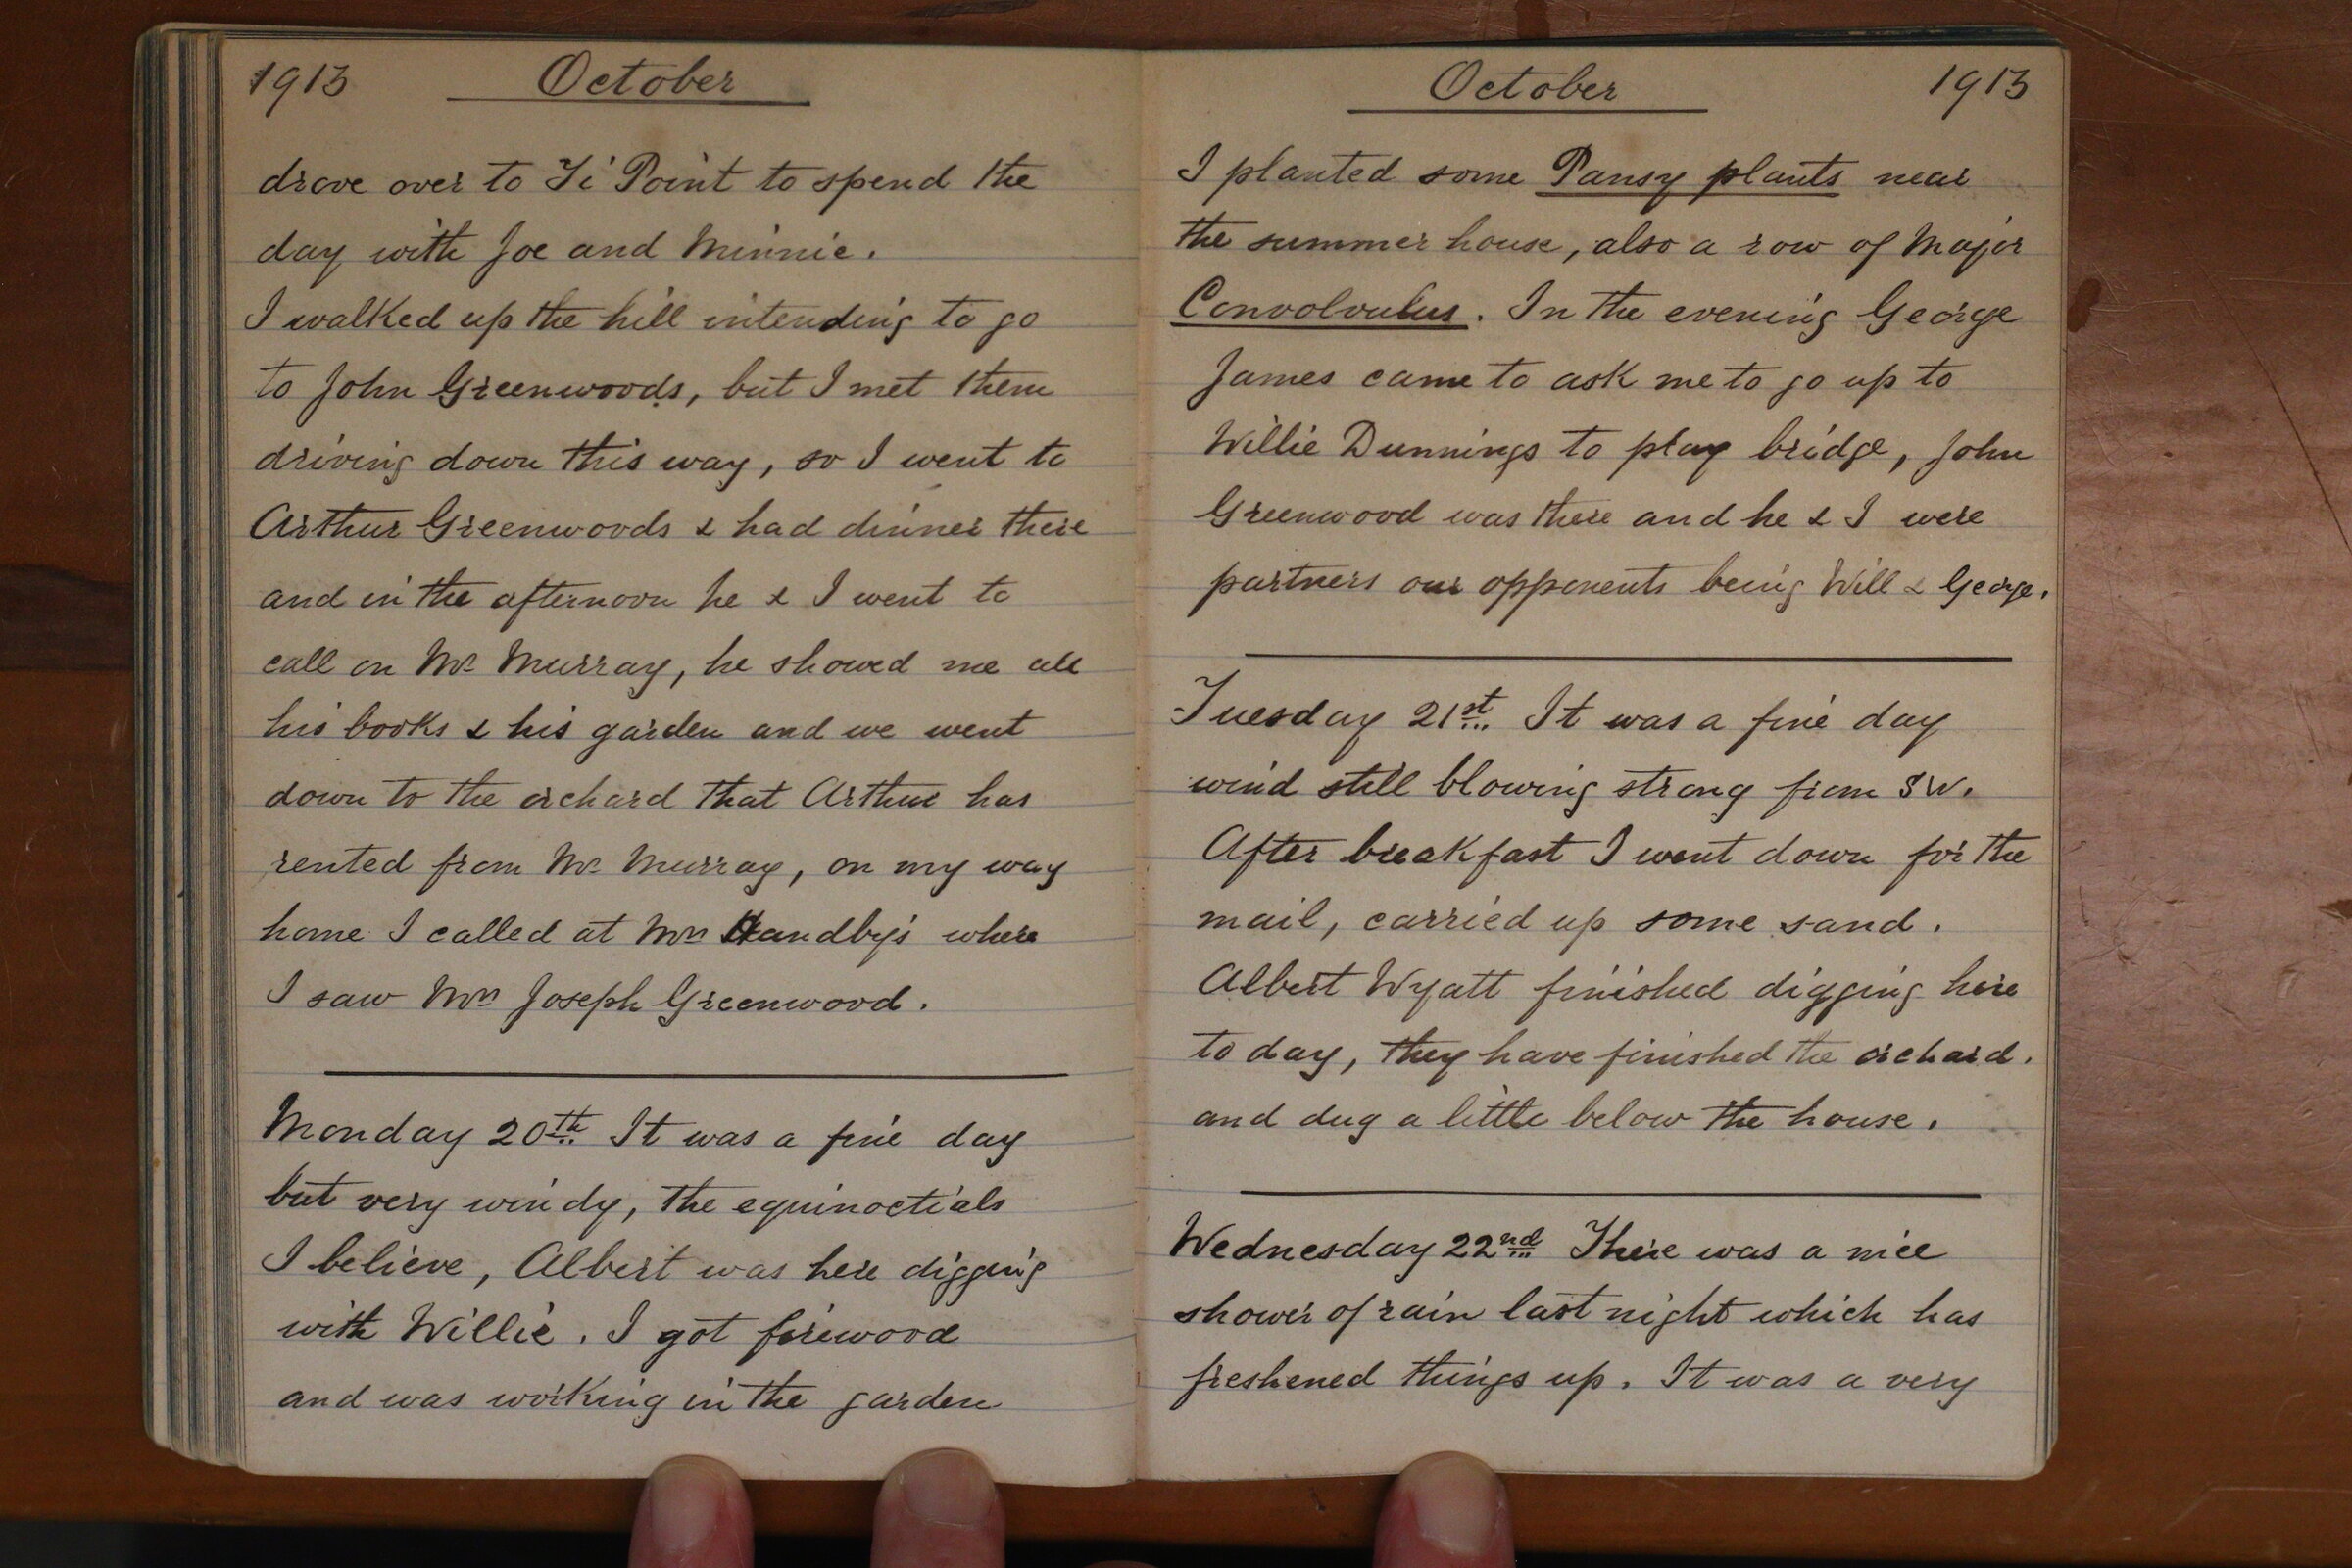 1913 October
drove over to Ti Point to spend the
day with Joe and Minnie.
I walked up the hill intending to go
to John Greenwoods, but I met them
driving down this way, so I went to
Arthur Greenwoods & had dinner there
and in the afternoon he & I went to
call on Mr Murray, he showed me all
his books & his garden and we went
down to the orchard that Arthur has
rented from Mr Murray, on my way
home I called at Mrs Handby's where
I saw Mrs Joseph Greenwood.
Monday 20th It was a fine day
but very windy, the equinoctials
I believe, Albert was here digging
with Willie. I got firewood
and was working in the garden
October 1913
I planted some Pansy plants near
the summer house, also a row of Major
Convolvulus. In the evening George
James came to ask me to go up to
Willie Dunnings to play bridge, John
Greenwood was there and he & I were
partners our opponents being Will & George.
Tuesday 21st It was a fine day
wind still blowing strong from SW.
After breakfast I went down for the
mail, carried up some sand.
Albert Wyatt finished digging here
to day, they have finished the orchard.
and dug a little below the house.
Wednesday 22nd There was a nice
shower of rain last night which has
freshened things up. It was a very